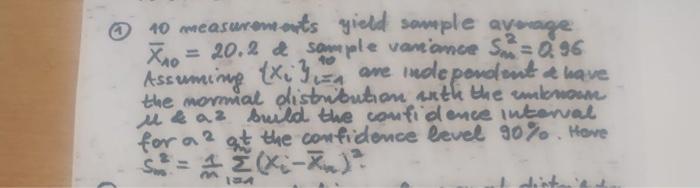 ① 10 measurements yield sample average
X̄₁₀ = 20.2 & sample variance Sₘ² = 0.96
Assuming {Xᵢ}ᵢ₌₁¹⁰ are independent & have
the normal distribution with the unknown
μ & a² build the confidence interval
for a² at the confidence level 90%. Here
Sₘ² = 1/n Σᵢ₌₁ⁿ (Xᵢ - X̄ₙ)².